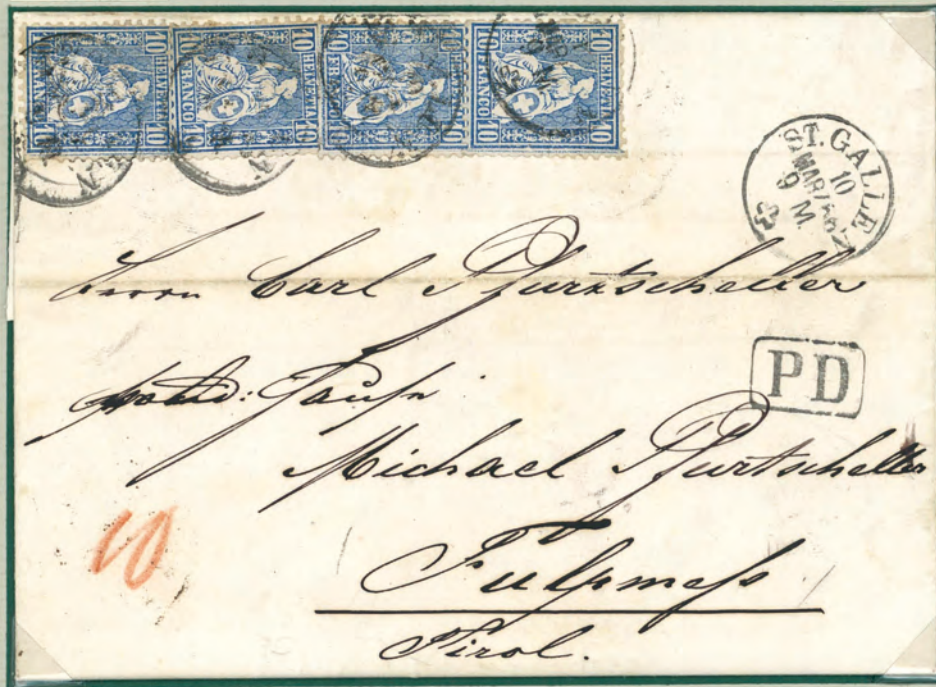 10 HELVETIA 10 FRANCO 10
10 HELVETIA 10 FRANCO 10
10 HELVETIA 10 FRANCO
10 HELVETIA 10 FRANCO 10
ST. GALLEN
10
MAR
9 M
Herrn Carl Pfurtscheller
PD
Michael Pfurtscheller
10
Fulpmess
Tirol.